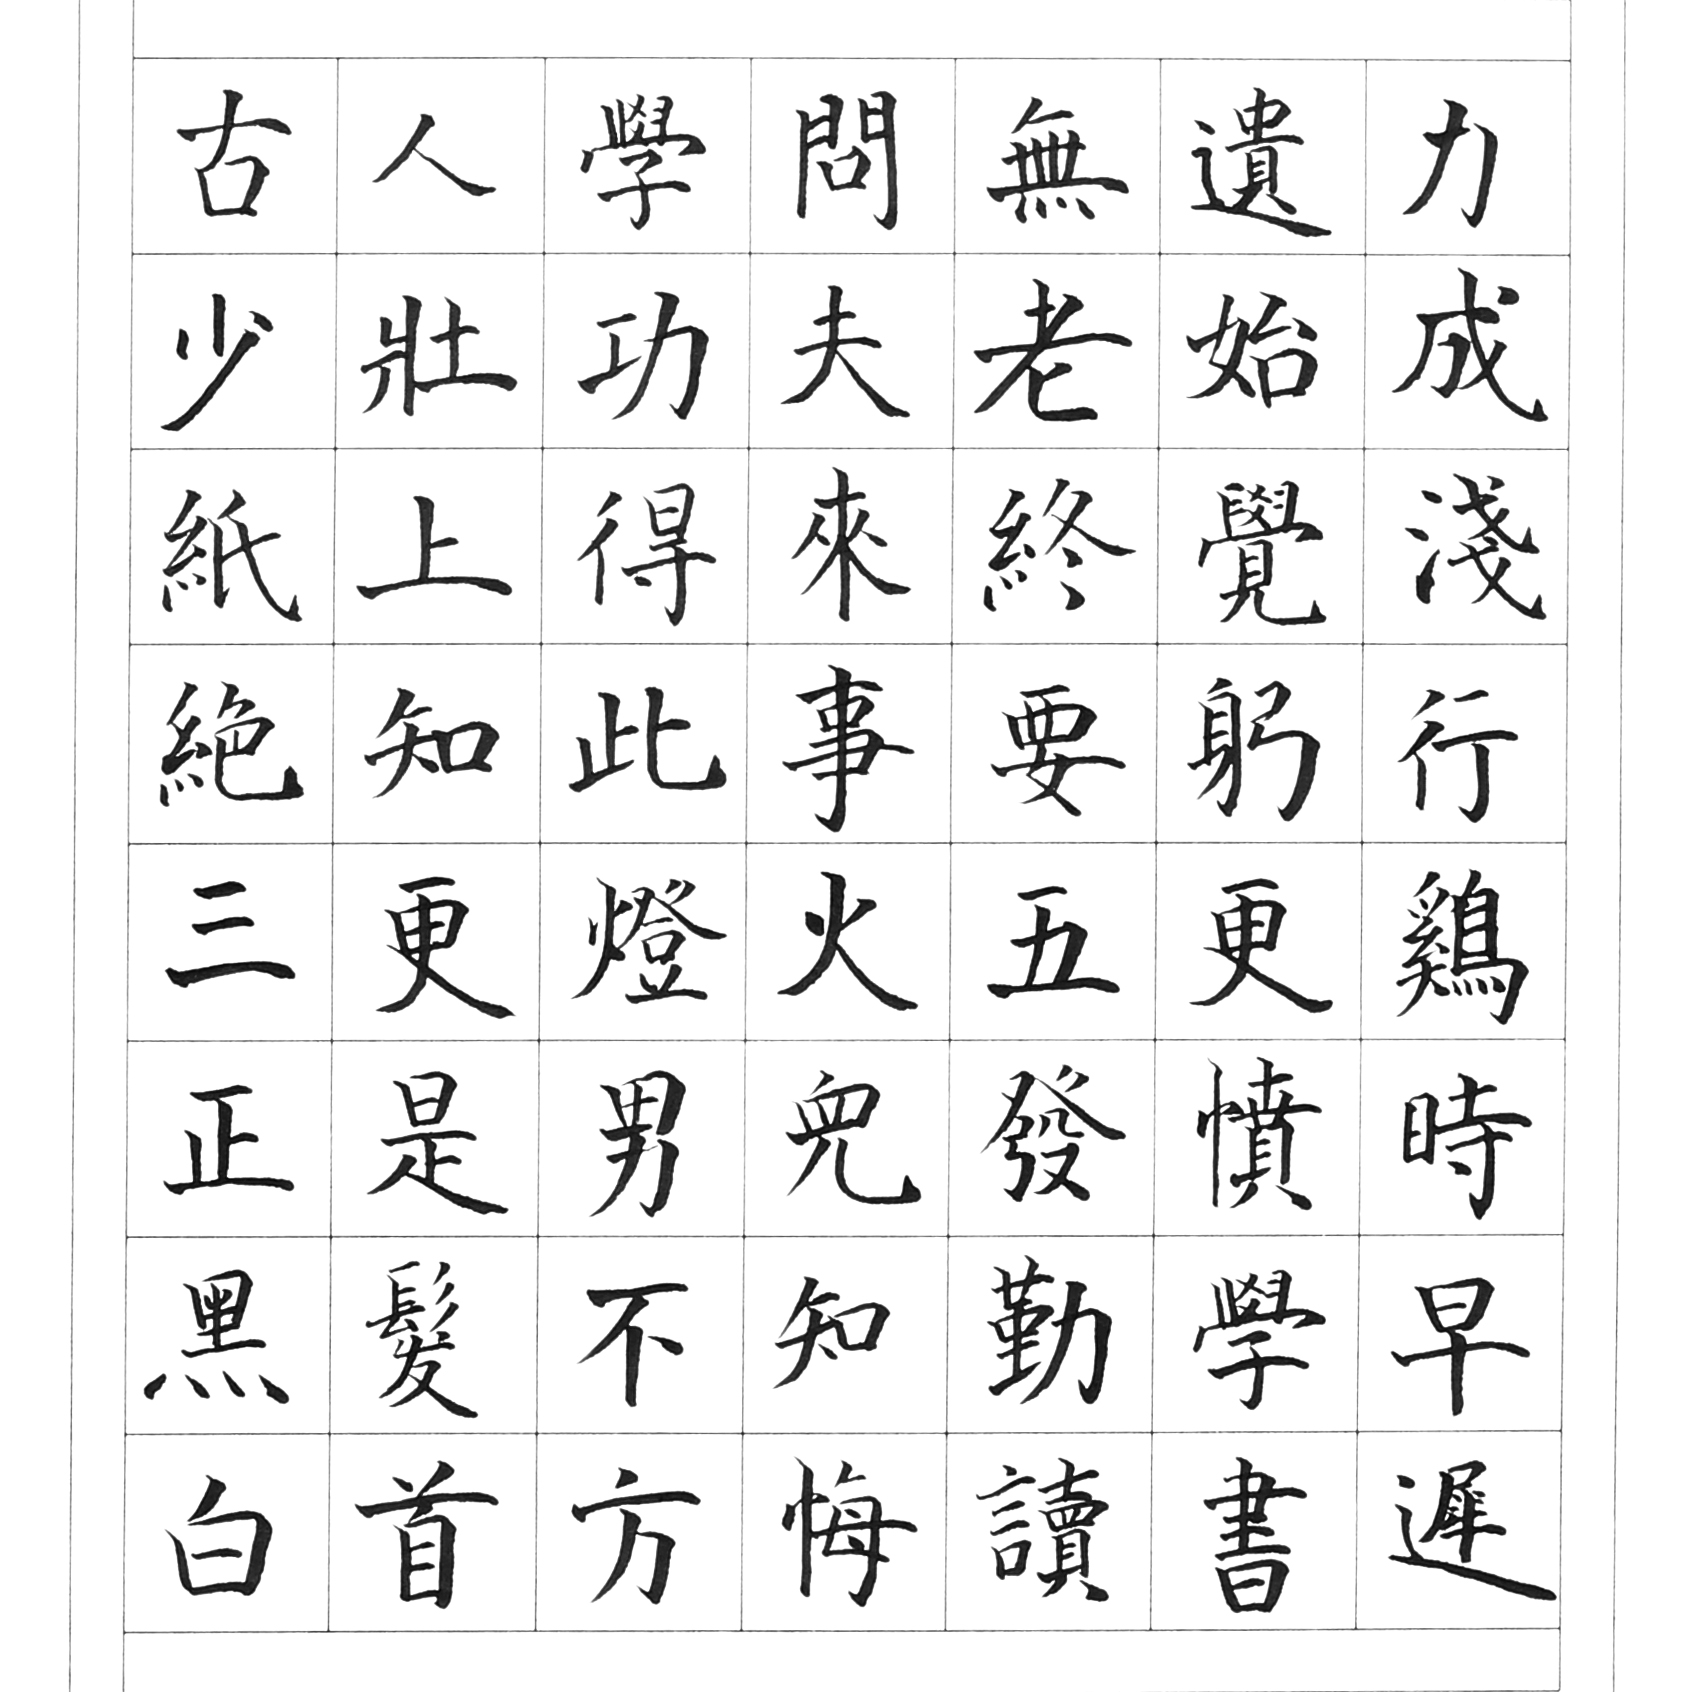 古人學問無遺力
少壯功夫老始成
紙上得來終覺淺
絕知此事要躬行
三更燈火五更鷄
正是男兒發憤時
黑髮不知勤學早
白首方悔讀書遲